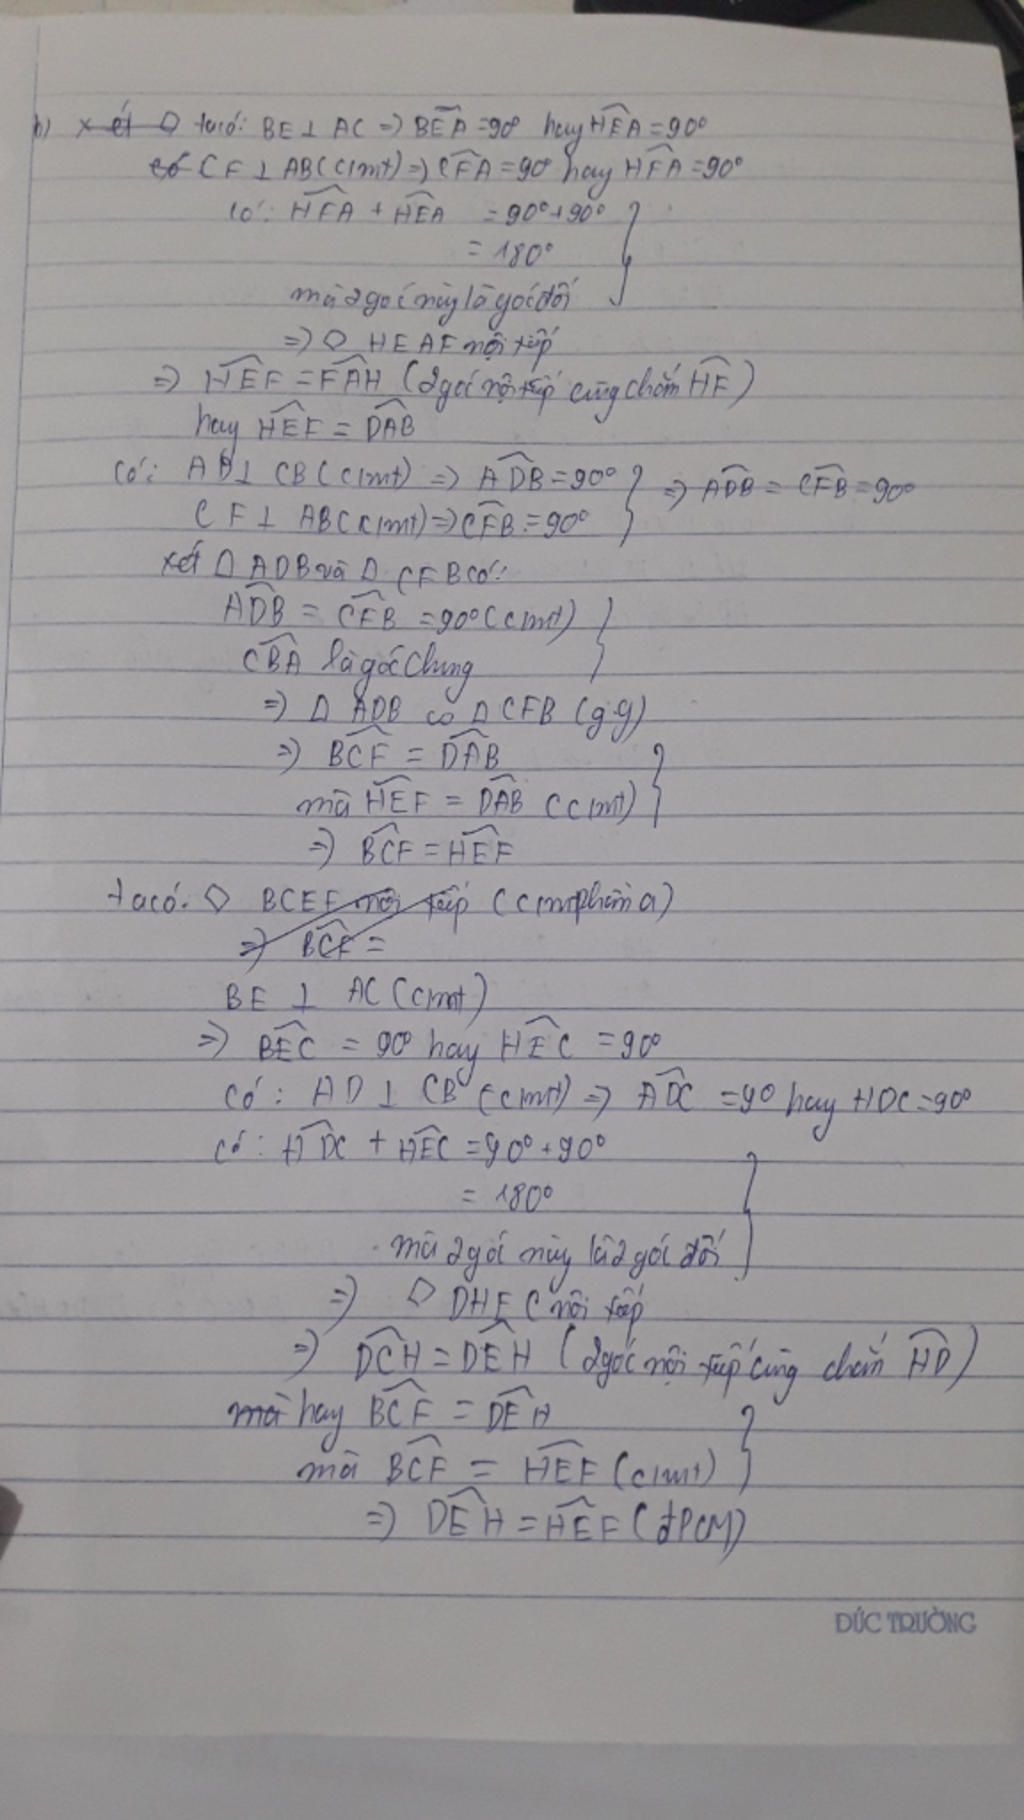 b) xét ◇ ta có: BE ⊥ AC => BÊA = 90° hay HÊA = 90°
có CF ⊥ AB (cmt) => CF̂A = 90° hay HF̂A = 90°
Có: HF̂A + HÊA = 90° + 90°
= 180°
mà 2 góc này là góc đối
=> ◇ HEAF nội tiếp
=> HÊF = FÂH (2 góc nội tiếp cùng chắn HF)
hay HÊF = DÂB
Có: AD ⊥ CB (cmt) => AD̂B = 90° => AD̂B = CF̂B = 90°
CF ⊥ AB (cmt) => CF̂B = 90°
xét Δ ADB và Δ CFB có:
AD̂B = CF̂B = 90° (cmt)
CB̂A là góc chung
=> Δ ADB ∽ Δ CFB (g.g)
=> BĈF = DÂB
mà HÊF = DÂB (cmt)
=> BĈF = HÊF
ta có: ◇ BCEF nội tiếp (cm phần a)
=> BĈF =
BE ⊥ AC (cmt)
=> BÊC = 90° hay HÊC = 90°
Có: AD ⊥ CB (cmt) => AD̂C = 90 hay HDC = 90°
Có: HD̂C + HÊC = 90° + 90°
= 180°
mà 2 góc này là 2 góc đối
=> ◇ DHEC nội tiếp
=> DĈH = DÊH (2 góc nội tiếp cùng chắn HD)
mà hay BĈF = DÊH
mà BĈF = HÊF (cmt)
=> DÊH = HÊF (đPCM)
ĐỨC TRƯỜNG